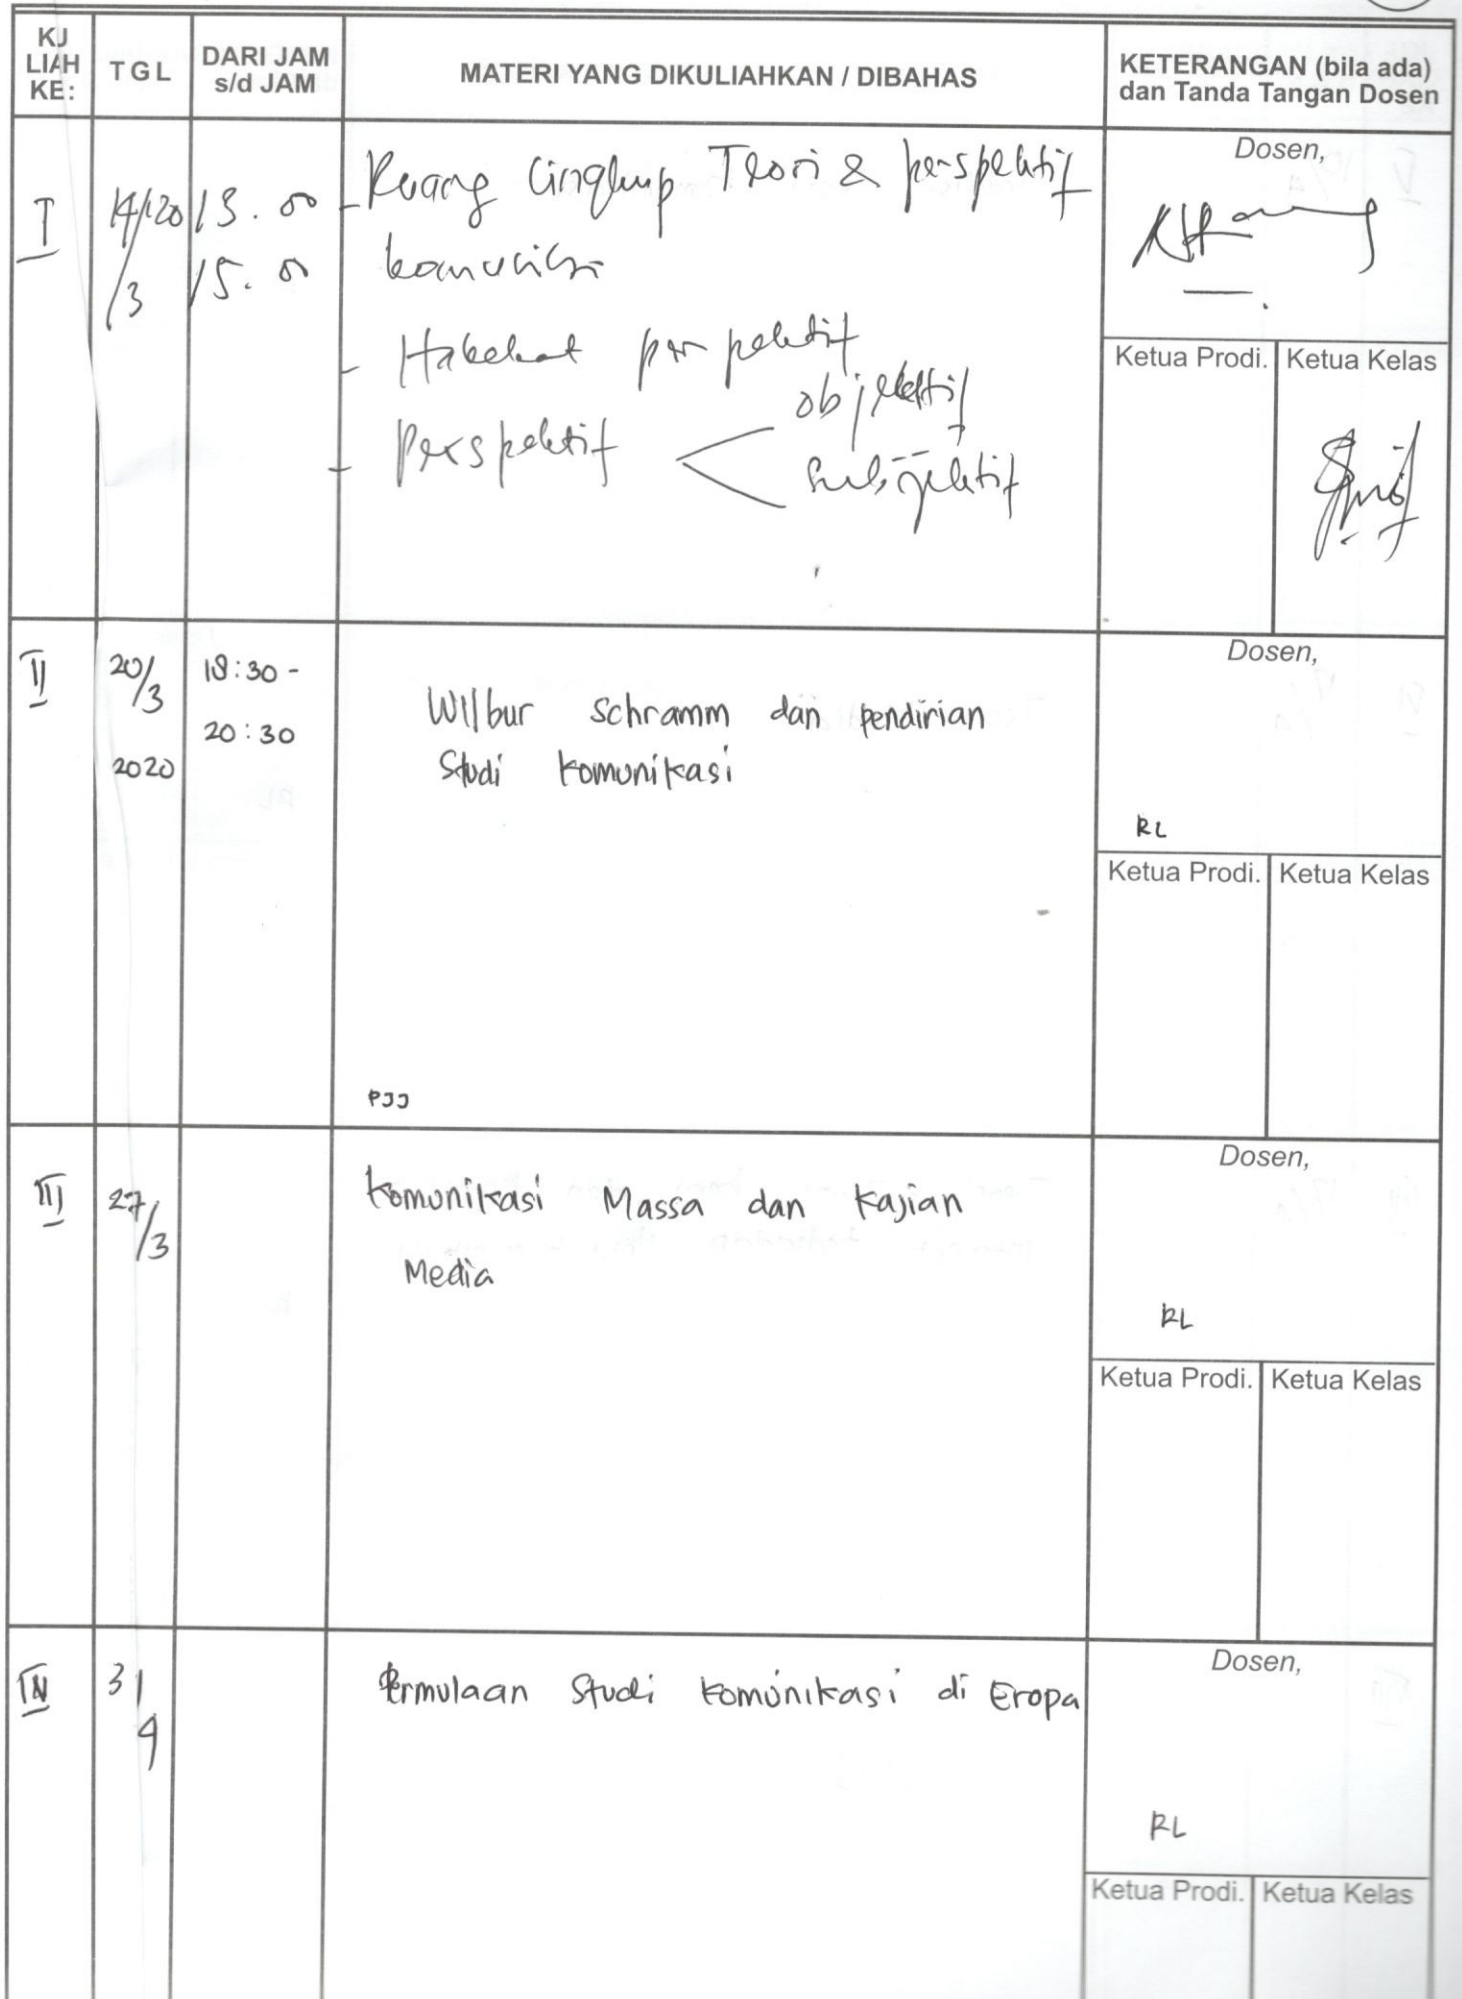 KU
LIAH
KE:
TGL
DARI JAM
s/d JAM
MATERI YANG DIKULIAHKAN / DIBAHAS
KETERANGAN (bila ada)
dan Tanda Tangan Dosen
I
14/20
/3
13.00
15.00
- Ruang lingkup Teori & perspektif
komunikasi
- Hakekat perspektif
- Perspektif < objektif
subjektif
Dosen,
Ketua Prodi. Ketua Kelas
II
20/3
2020
18:30 -
20:30
Wilbur Schramm dan pendirian
Studi komunikasi
PJJ
Dosen,
RL
Ketua Prodi. Ketua Kelas
III
27/3
Komunikasi Massa dan Kajian
Media
Dosen,
RL
Ketua Prodi. Ketua Kelas
IV
3/4
Permulaan Studi Komunikasi di Eropa
Dosen,
RL
Ketua Prodi. Ketua Kelas